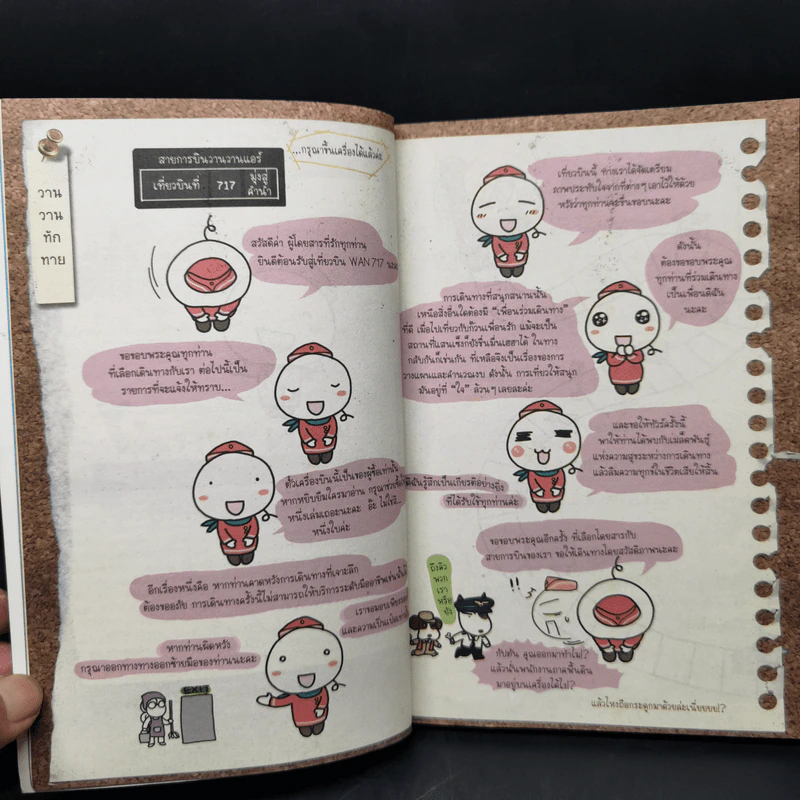 วาน
วาน
ทัก
ทาย
สายการบินวานวานแอร์
เที่ยวบินที่ 717 มุ่งสู่
คำนำ
...กรุณาขึ้นเครื่องได้แล้วค่ะ
สวัสดีค่า ผู้โดยสารที่รักทุกท่าน
ยินดีต้อนรับสู่เที่ยวบิน WAN 717 นะคะ
ขอขอบพระคุณทุกท่าน
ที่เลือกเดินทางกับเรา ต่อไปนี้เป็น
รายการที่จะแจ้งให้ทราบ...
ตั๋วเครื่องบินนี้เป็นของผู้ซื้อเท่านั้น
หากหยิบยืมใครมาอ่าน กรุณาช่วยซื้อ
หนึ่งเล่มเถอะนะคะ อ๊ะ ไม่ใช่สิ...
หนึ่งใบค่ะ
อีกเรื่องหนึ่งคือ หากท่านคาดหวังการเดินทางที่เจาะลึก
ต้องขออภัย การเดินทางครั้งนี้ไม่สามารถให้บริการระดับมืออาชีพเช่นนั้น
เราขอมอบเพียง
และความเป็นเบิก
หากท่านผิดหวัง
กรุณาออกทางทางออกซ้ายมือของท่านนะคะ
EXIT
เที่ยวบินนี้ ทางเราได้จัดเตรียม
ภาพประทับใจจากที่ต่างๆ เอาไว้ให้ด้วย
หวังว่าทุกท่านจะชื่นชอบนะคะ
ดังนั้น
ต้องขอขอบพระคุณ
ทุกท่านที่ร่วมเดินทาง
เป็นเพื่อนดิฉัน
นะคะ
การเดินทางที่สนุกสนานนั้น
เหนือสิ่งอื่นใดต้องมี "เพื่อนร่วมเดินทาง"
ที่ดี เมื่อไปเที่ยวกับก๊วนเพื่อนรัก แม้จะเป็น
สถานที่แสนเซ็งก็ยังชื่นมื่นเฮฮาได้ ในทาง
กลับกันก็เช่นกัน ที่เหลือจึงเป็นเรื่องของการ
วางแผนและคำนวณงบ ดังนั้น การเที่ยวให้สนุก
มันอยู่ที่ "ใจ" ล้วนๆ เลยละค่ะ
และขอให้ทัวร์ครั้งนี้
พาให้ท่านได้พบกับเมล็ดพันธุ์
แห่งความสุขระหว่างการเดินทาง
แล้วลืมความทุกข์ในชีวิตเสียให้สิ้น
ดิฉันรู้สึกเป็นเกียรติอย่างยิ่ง
ที่ได้รับใช้ทุกท่านค่ะ
ขอขอบพระคุณอีกครั้ง ที่เลือกโดยสารกับ
สายการบินของเรา ขอให้เดินทางโดยสวัสดิภาพนะคะ
ถึงคิว
พวก
เรา
หรือ
ยัง
!!
กัปตัน คุณออกมาทำไม!?
แล้วนั่นพนักงานภาคพื้นดิน
มาอยู่บนเครื่องได้ไง!?
แล้วไหงถือกระดูกมาด้วยล่ะเนี่ยยยย!?